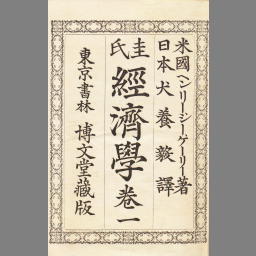 米國ヘンリーシーケーリー著
日本犬養毅譯
圭氏經濟學卷一
東京書林 博文堂藏版